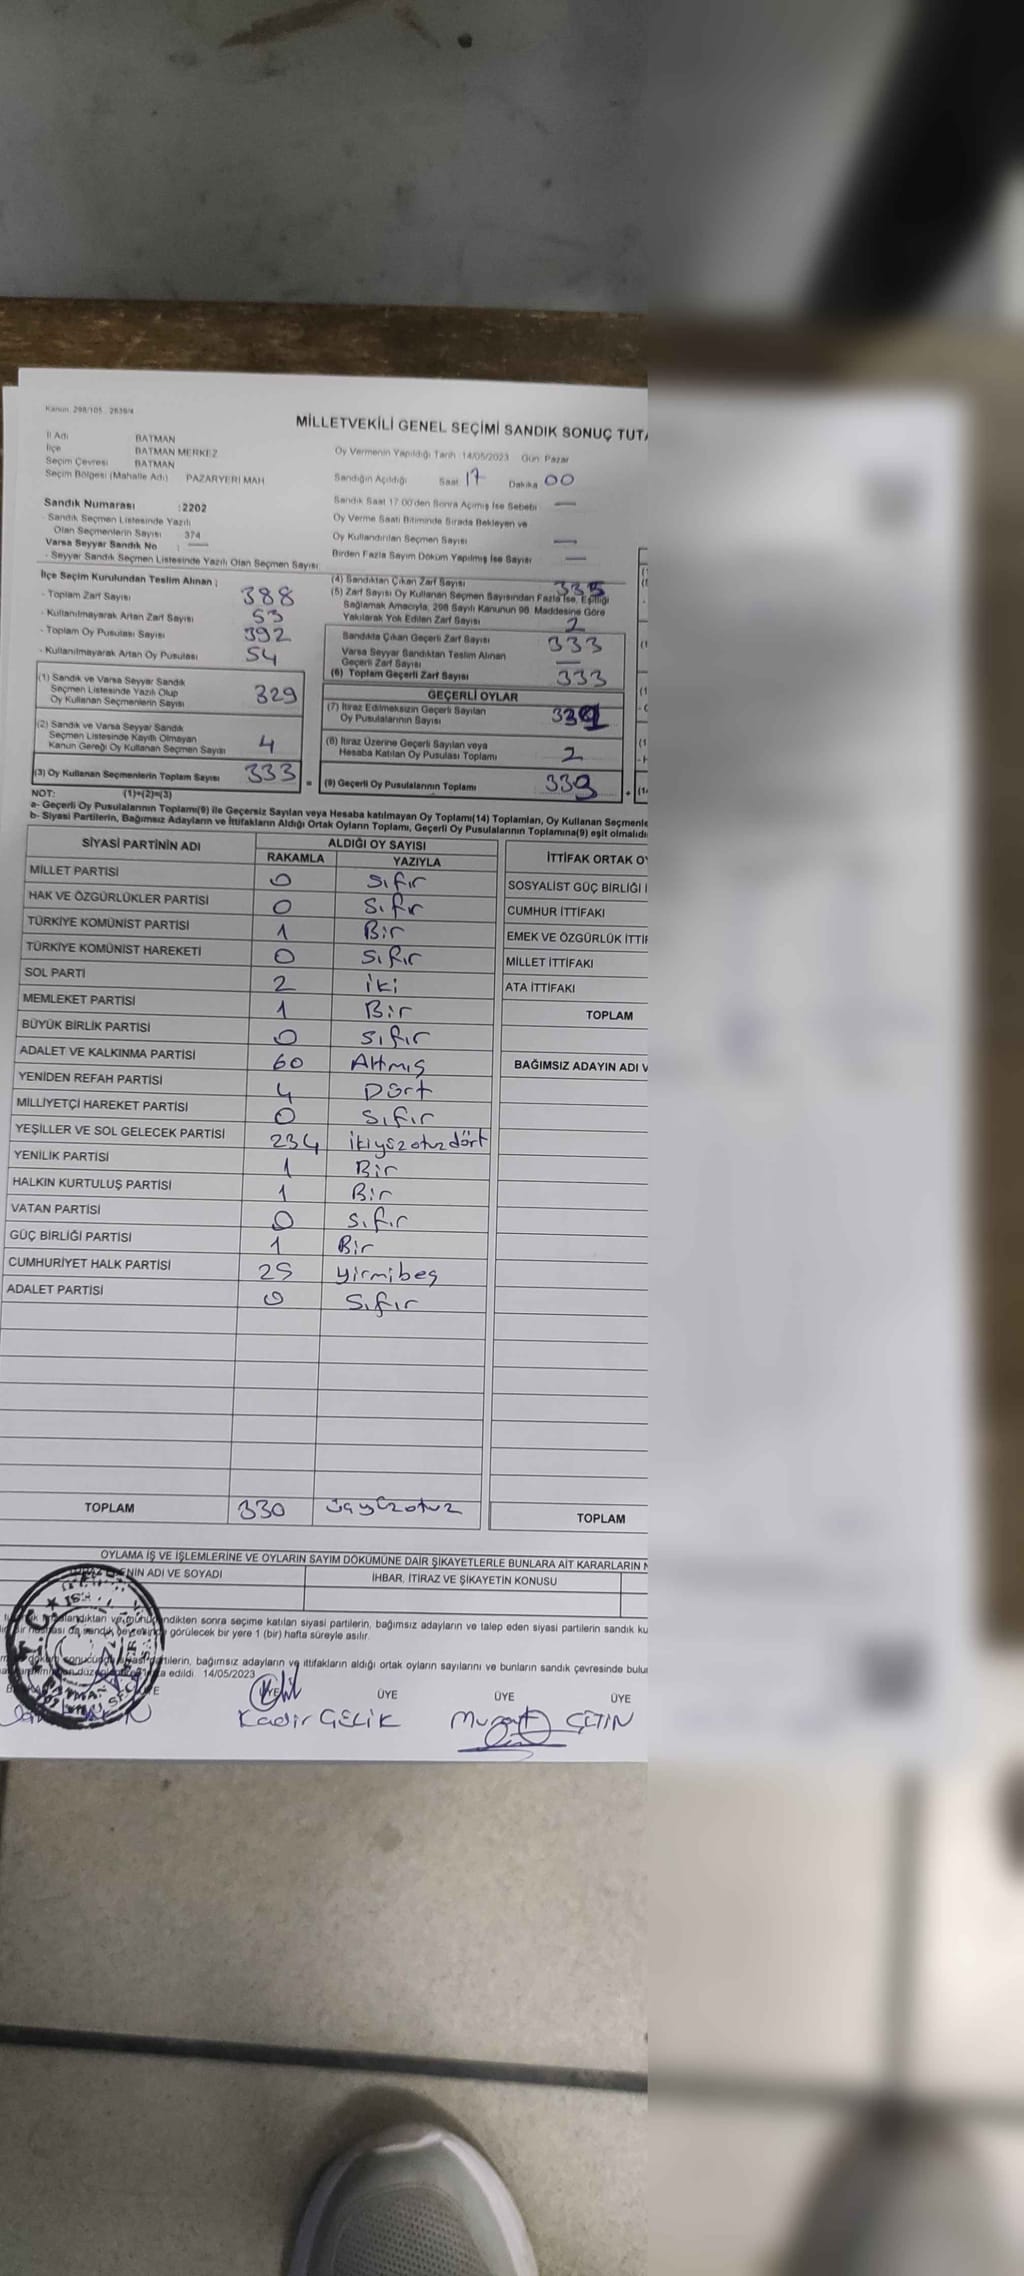 Kanun: 298/105 , 2839/4
MİLLETVEKİLİ GENEL SEÇİMİ SANDIK SONUÇ TUTA
İl Adı BATMAN
İlçe BATMAN MERKEZ
Seçim Çevresi BATMAN
Seçim Bölgesi (Mahalle Adı) PAZARYERİ MAH
Oy Vermenin Yapıldığı Tarih : 14/05/2023 Gün: Pazar
Sandığın Açıldığı Saat 17 Dakika 00
Sandık Saat 17:00'den Sonra Açımış İse Sebebi : —
Oy Verme Saati Bitiminde Sırada Bekleyen ve
Oy Kullandırılan Seçmen Sayısı —
Birden Fazla Sayım Döküm Yapılmış İse Sayısı —
Sandık Numarası :2202
- Sandık Seçmen Listesinde Yazılı
Olan Seçmenlerin Sayısı 374
Varsa Seyyar Sandık No : —
- Seyyar Sandık Seçmen Listesinde Yazılı Olan Seçmen Sayısı:
İlçe Seçim Kurulundan Teslim Alınan ;
- Toplam Zarf Sayısı 388
- Kullanılmayarak Artan Zarf Sayısı 53
- Toplam Oy Pusulası Sayısı 392
- Kullanılmayarak Artan Oy Pusulası 54
(1) Sandık ve Varsa Seyyar Sandık
Seçmen Listesinde Yazılı Olup
Oy Kullanan Seçmenlerin Sayısı 329
(2) Sandık ve Varsa Seyyar Sandık
Seçmen Listesinde Kayıtlı Olmayan
Kanun Gereği Oy Kullanan Seçmen Sayısı 4
(3) Oy Kullanan Seçmenlerin Toplam Sayısı 333 =
(4) Sandıktan Çıkan Zarf Sayısı 335
(5) Zarf Sayısı Oy Kullanan Seçmen Sayısından Fazla İse, Eşitliği
Sağlamak Amacıyla, 298 Sayılı Kanunun 98. Maddesine Göre
Yakılarak Yok Edilen Zarf Sayısı 2
Sandıkta Çıkan Geçerli Zarf Sayısı 333
Varsa Seyyar Sandıktan Teslim Alınan
Geçerli Zarf Sayısı —
(6) Toplam Geçerli Zarf Sayısı 333
GEÇERLİ OYLAR
(7) İtiraz Edilmeksizin Geçerli Sayılan
Oy Pusulalarının Sayısı
(8) İtiraz Üzerine Geçerli Sayılan veya
Hesaba Katılan Oy Pusulası Toplamı 2
(9) Geçerli Oy Pusulalarının Toplamı +
NOT: (1)+(2)=(3)
a- Geçerli Oy Pusulalarının Toplamı(9) ile Geçersiz Sayılan veya Hesaba katılmayan Oy Toplamı(14) Toplamları, Oy Kullanan Seçmenle
b- Siyasi Partilerin, Bağımsız Adayların ve İttifakların Aldığı Ortak Oyların Toplamı, Geçerli Oy Pusulalarının Toplamına(9) eşit olmalıdı
SİYASİ PARTİNİN ADI ALDIĞI OY SAYISI
RAKAMLA YAZIYLA
MİLLET PARTİSİ 0 Sıfır
HAK VE ÖZGÜRLÜKLER PARTİSİ 0 Sıfır
TÜRKİYE KOMÜNİST PARTİSİ 1 Bir
TÜRKİYE KOMÜNİST HAREKETİ 0 Sıfır
SOL PARTİ 2 iki
MEMLEKET PARTİSİ 1 Bir
BÜYÜK BİRLİK PARTİSİ 0 Sıfır
ADALET VE KALKINMA PARTİSİ 60 Altmış
YENİDEN REFAH PARTİSİ 4 Dört
MİLLİYETÇİ HAREKET PARTİSİ 0 Sıfır
YEŞİLLER VE SOL GELECEK PARTİSİ 234 ikiyüzotuzdört
YENİLİK PARTİSİ 1 Bir
HALKIN KURTULUŞ PARTİSİ 1 Bir
VATAN PARTİSİ 0 Sıfır
GÜÇ BİRLİĞİ PARTİSİ 1 Bir
CUMHURİYET HALK PARTİSİ 25 yirmibeş
ADALET PARTİSİ 0 Sıfır
TOPLAM 330 üçyüzotuz
İTTİFAK ORTAK OY
SOSYALİST GÜÇ BİRLİĞİ İ
CUMHUR İTTİFAKI
EMEK VE ÖZGÜRLÜK İTTİF
MİLLET İTTİFAKI
ATA İTTİFAKI
TOPLAM
BAĞIMSIZ ADAYIN ADI V
TOPLAM
OYLAMA İŞ VE İŞLEMLERİNE VE OYLARIN SAYIM DÖKÜMÜNE DAİR ŞİKAYETLERLE BUNLARA AİT KARARLARIN N
NİN ADI VE SOYADI İHBAR, İTİRAZ VE ŞİKAYETİN KONUSU
sonra seçime katılan siyasi partilerin, bağımsız adayların ve talep eden siyasi partilerin sandık ku
görülecek bir yere 1 (bir) hafta süreyle asılır.
partilerin, bağımsız adayların ve ittifakların aldığı ortak oyların sayılarını ve bunların sandık çevresinde bulu
edildi. 14/05/2023
ÜYE ÜYE ÜYE
Kadir ÇELİK Murat ÇETİN